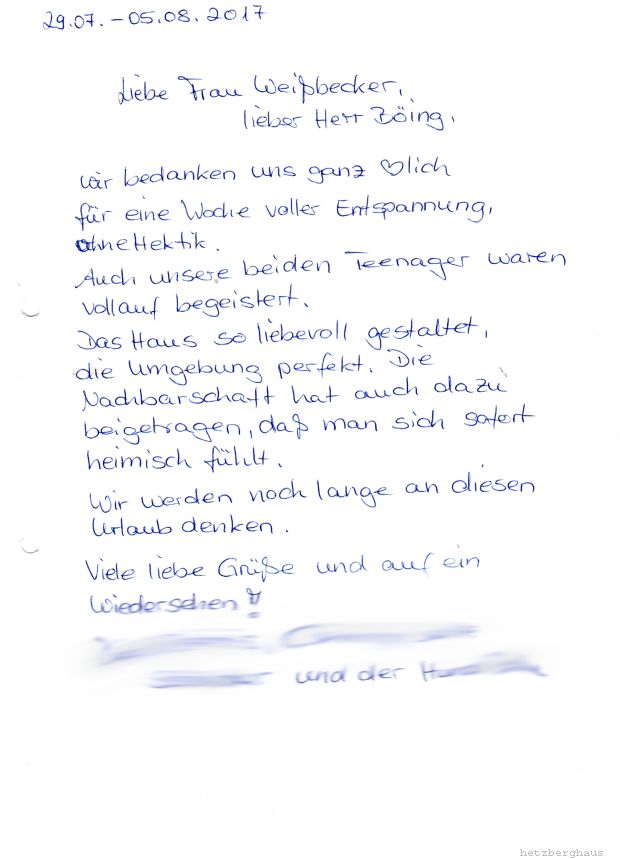 29.07. - 05.08. 2017
Liebe Frau Weißbecker,
lieber Herr Böing,
wir bedanken uns ganz ♡lich
für eine Woche voller Entspannung,
ohne Hektik.
Auch unsere beiden Teenager waren
vollauf begeistert.
Das Haus so liebevoll gestaltet,
die Umgebung perfekt. Die
Nachbarschaft hat auch dazu
beigetragen, daß man sich sofort
heimisch fühlt.
Wir werden noch lange an diesen
Urlaub denken.
Viele liebe Grüße und auf ein
Wiedersehen!
und der
hetzberghaus